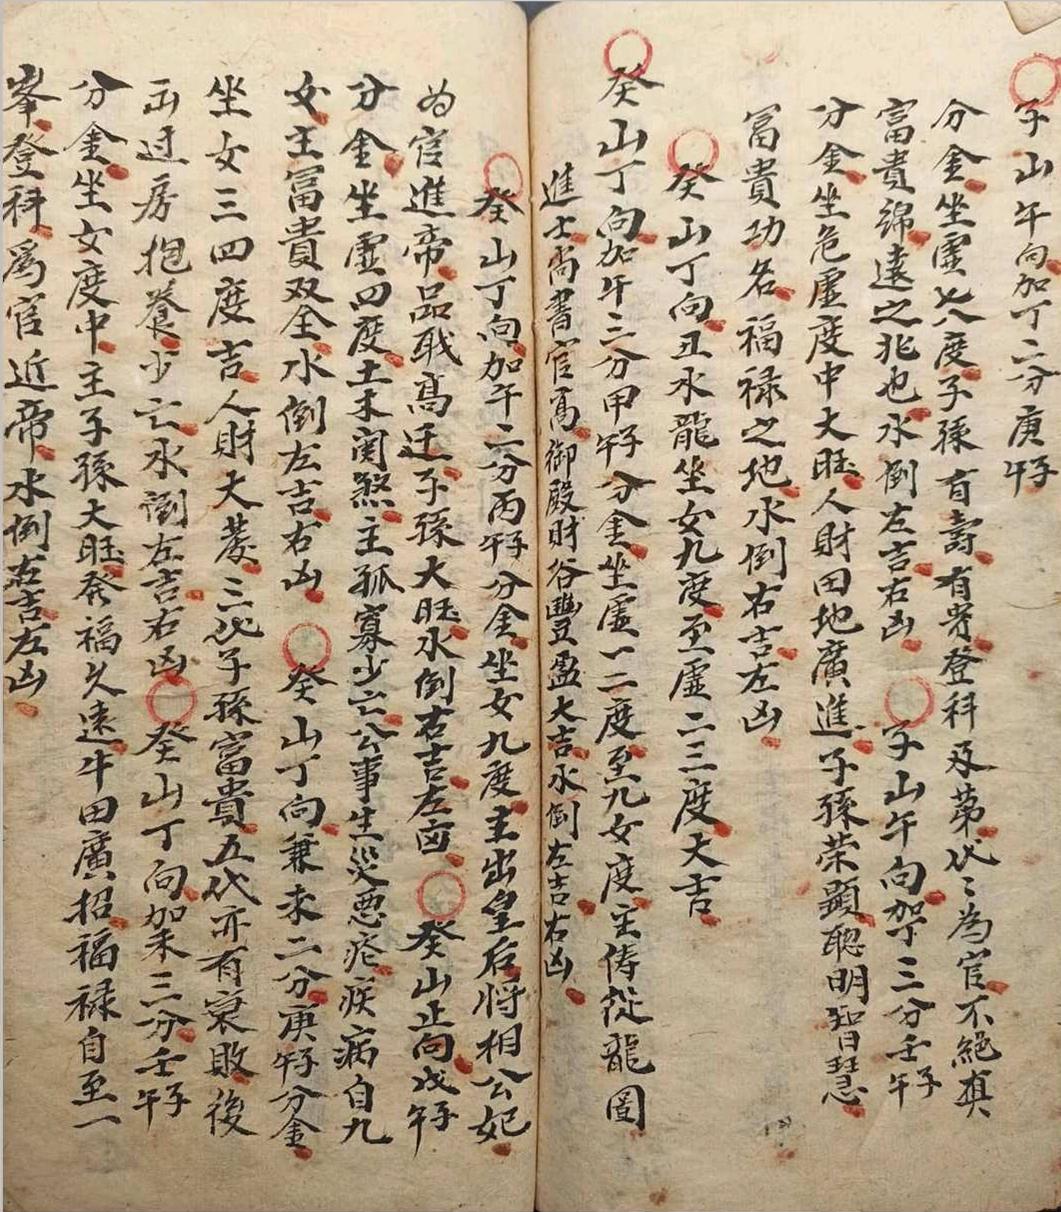 子山午向加丁二分庚子午
分金坐虚七八度子孫有壽有考登科及第代々為官不絕真
富貴綿遠之兆也水倒左吉右凶 子山午向加丁三分壬子午
分金坐危虚度中大旺人財田地廣進子孫荣顯聰明智慧
富貴功名福禄之地水倒右吉左凶
癸山丁向丑水龍坐女九度至虚二三度大吉
癸山丁向加午三分甲子午分金坐虚一二度至九女度主侍從龍圖
進士尚書官高御殿財谷豐盈大吉水倒左吉右凶
癸山丁向加午二分丙子午分金坐女九度主出皇后将相公妃
为官進帝品职高迁子孫大旺水倒右吉左凶 癸山正向戊子午
分金坐虚四度土木関煞主孤寡少亡公事生災恶疮疾病自九
女主冨貴双全水倒左吉右凶 癸山丁向兼未二分庚子午分金
坐女三四度吉人財大發三代子孫富貴五代亦有衰敗後
出过房抱養少亡水倒左吉右凶 癸山丁向加未三分壬子午
分金坐女度中主子孫大旺癸福久遠牛田廣招福禄自至一
舉登科為官近帝水倒右吉左凶